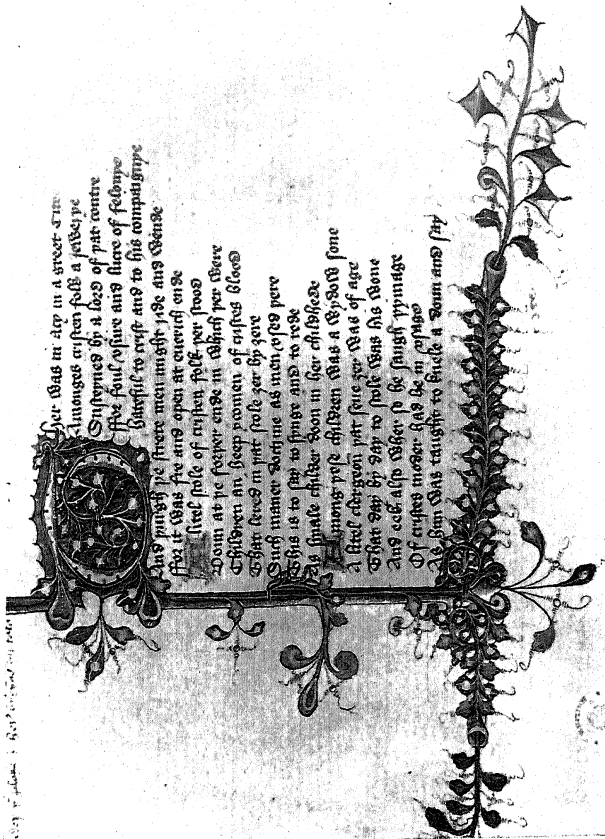 Ther was in asy in a greet Cite
Amonges cristen folk a jewerye
Susteyned by a lord of þat contre
ffor foul vsure and lucre of felonye
hateful to crist and to his compaignye
And þurgh þe strete men might ride and wende
ffor it was fre and open at euerich ende
A litel scole of cristen folk þer stood
Doun at þe forþer ende in which þer were
Children an heep ycomen of cristes blood
That lered in þat scole ȝer by ȝere
Such maner doctrine as men vsed þere
This is to say to singe and to rede
As smale childer doon in her childhede
Among þese children was a wydow sone
A litel clergeoun þat seue ȝer was of age
That day by day to scole was his wone
And eek also wher so he saugh þymage
Of cristes moder had he in vsage
As him was taught to knele a doun and say